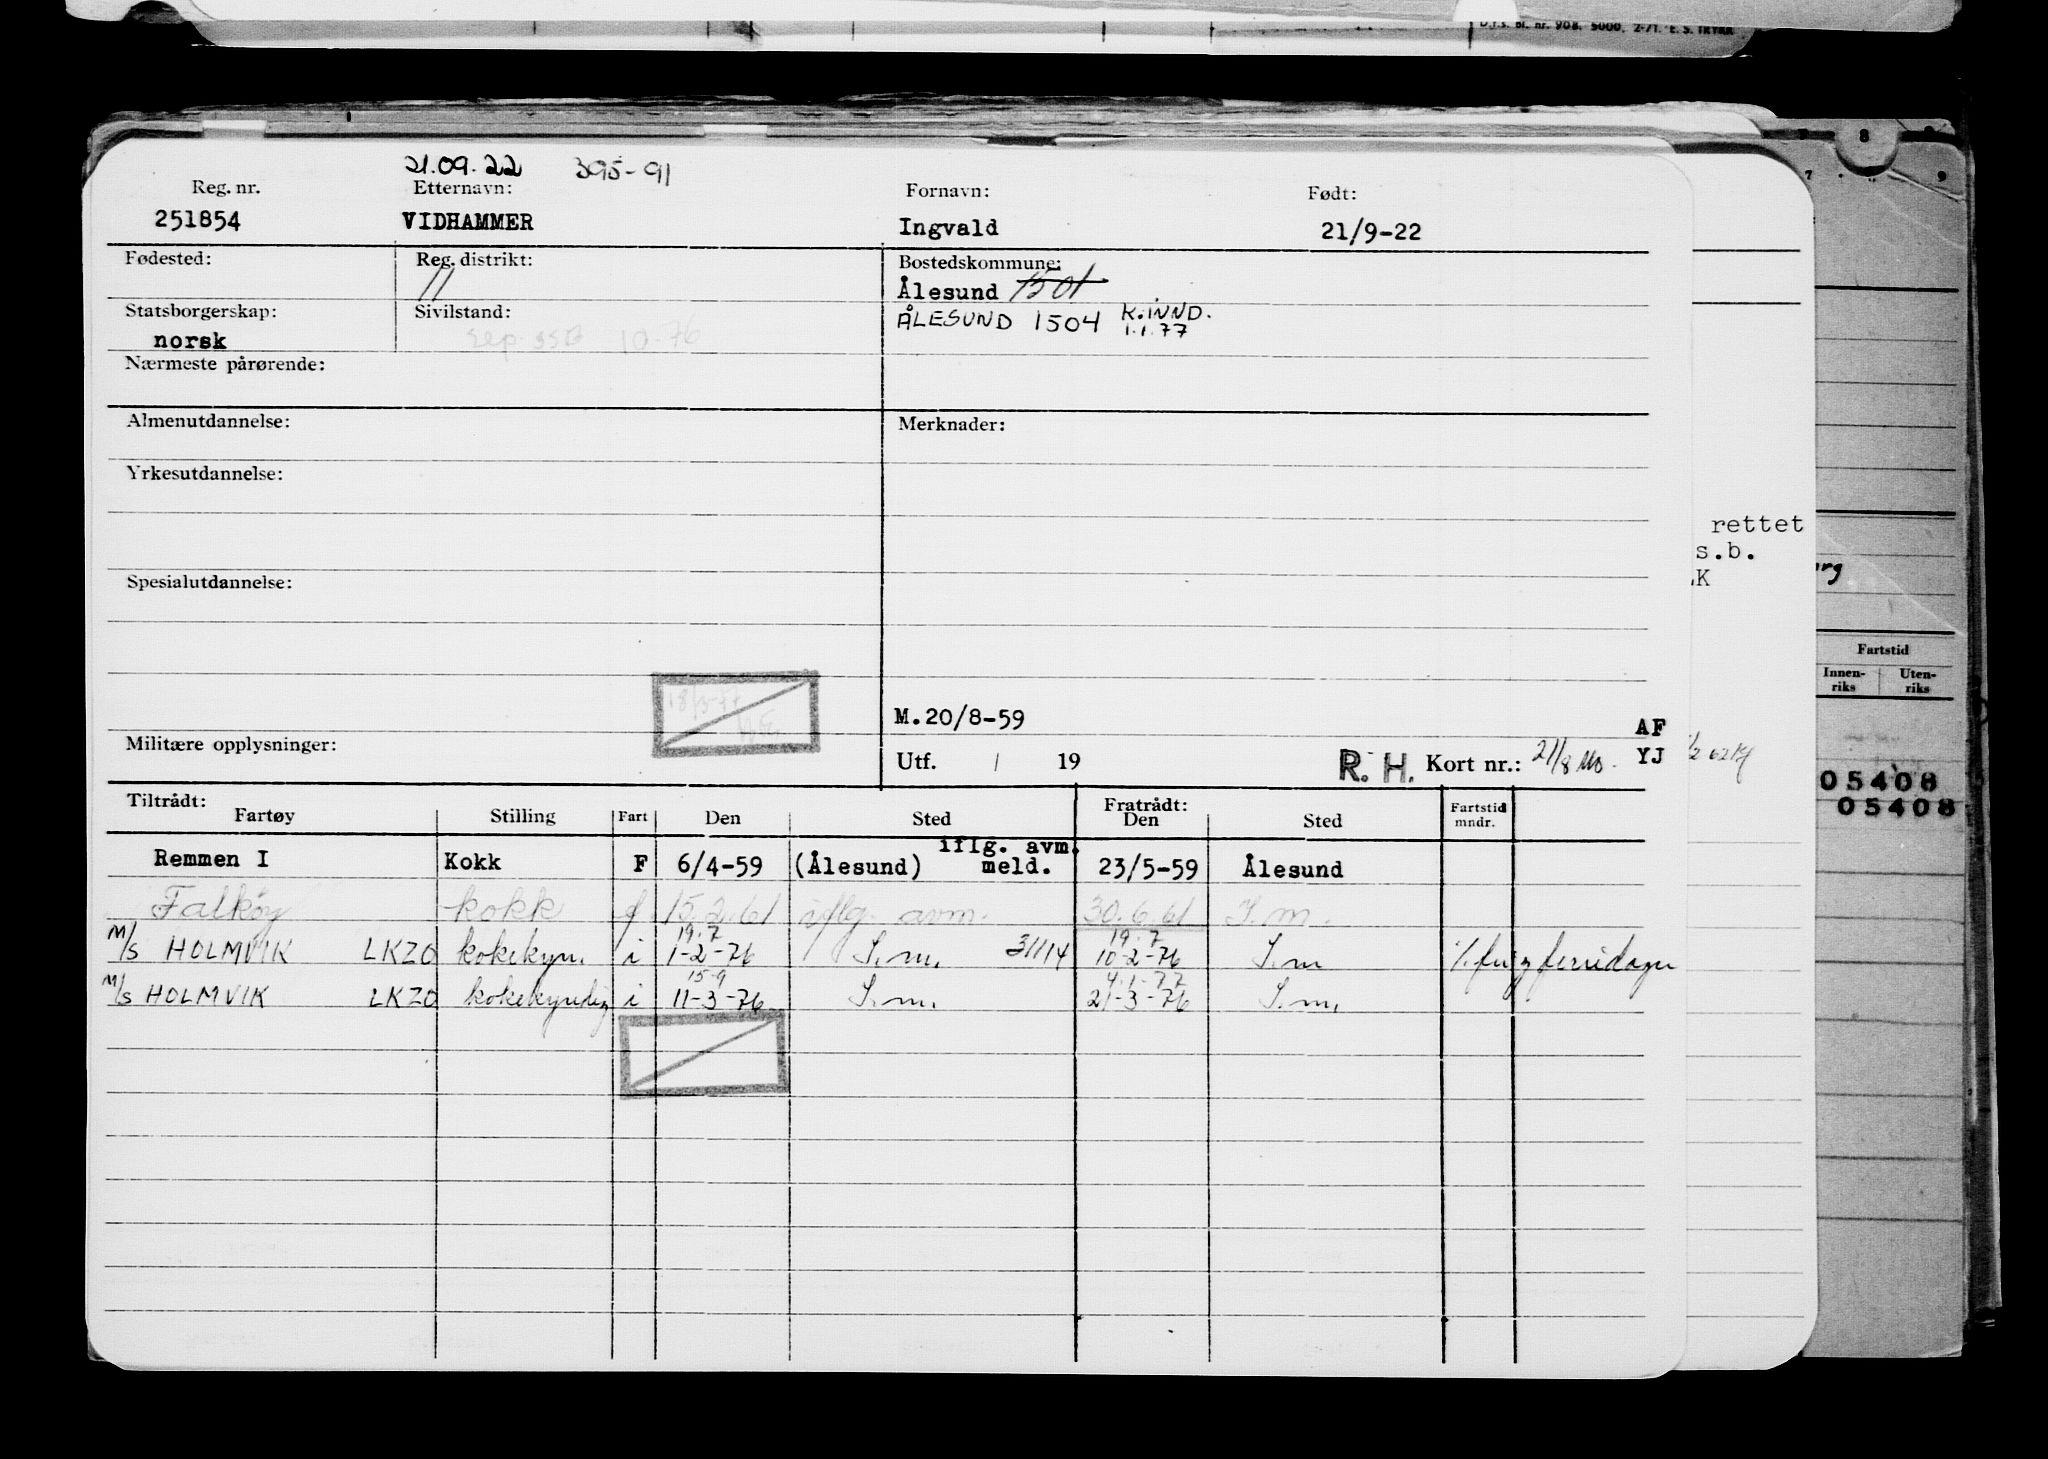 D.f.s. bl. nr. 908. 5000. 2-71. E. S. TRYKK
21.09.22 395-91
Reg. nr. Etternavn: Fornavn: Født:
251854 VIDHAMMER Ingvald 21/9-22
Fødested: Reg. distrikt: Bostedskommune:
11 Ålesund 1501
Statsborgerskap: Sivilstand: ÅLESUND 1504 K.INND. 1.1.77
norsk 10-76
Nærmeste pårørende:
Almenutdannelse: Merknader:
Yrkesutdannelse:
rettet
s.b.
K
Spesialutdannelse:
Fartstid
Innen-riks Uten-riks
18/3-77
M.20/8-59 AF
Militære opplysninger: Utf. / 19 R. H. Kort nr.: 21/8 YJ
05408
05408
Tiltrådt: Fratrådt:
Fartøy Stilling Fart Den Sted Den Sted Fartstid mndr.
Remmen I Kokk F 6/4-59 (Ålesund) iflg. avm. meld. 23/5-59 Ålesund
Falkøy kokk f 15.2.61 iflg. avm. 30.6.61 S.m.
19.7 19.7
M/s HOLMVIK LKZO kokekyn. i 1-2-76 S.m. 31114 10-2-76 S.m
15-9 4.1-77
M/s HOLMVIK LKZO kokekyndig i 11-3-76 S.m. 21-3-76 S.m.